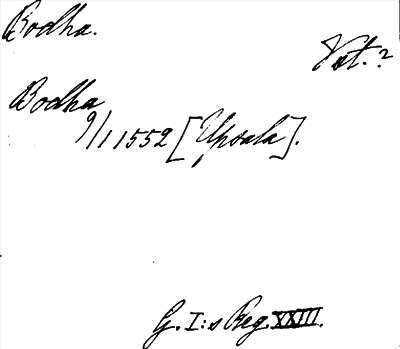 Bodha.
Vst. ?
Bodha
9/1 1552 [Upsala].
G. I:s Reg. XXIII.